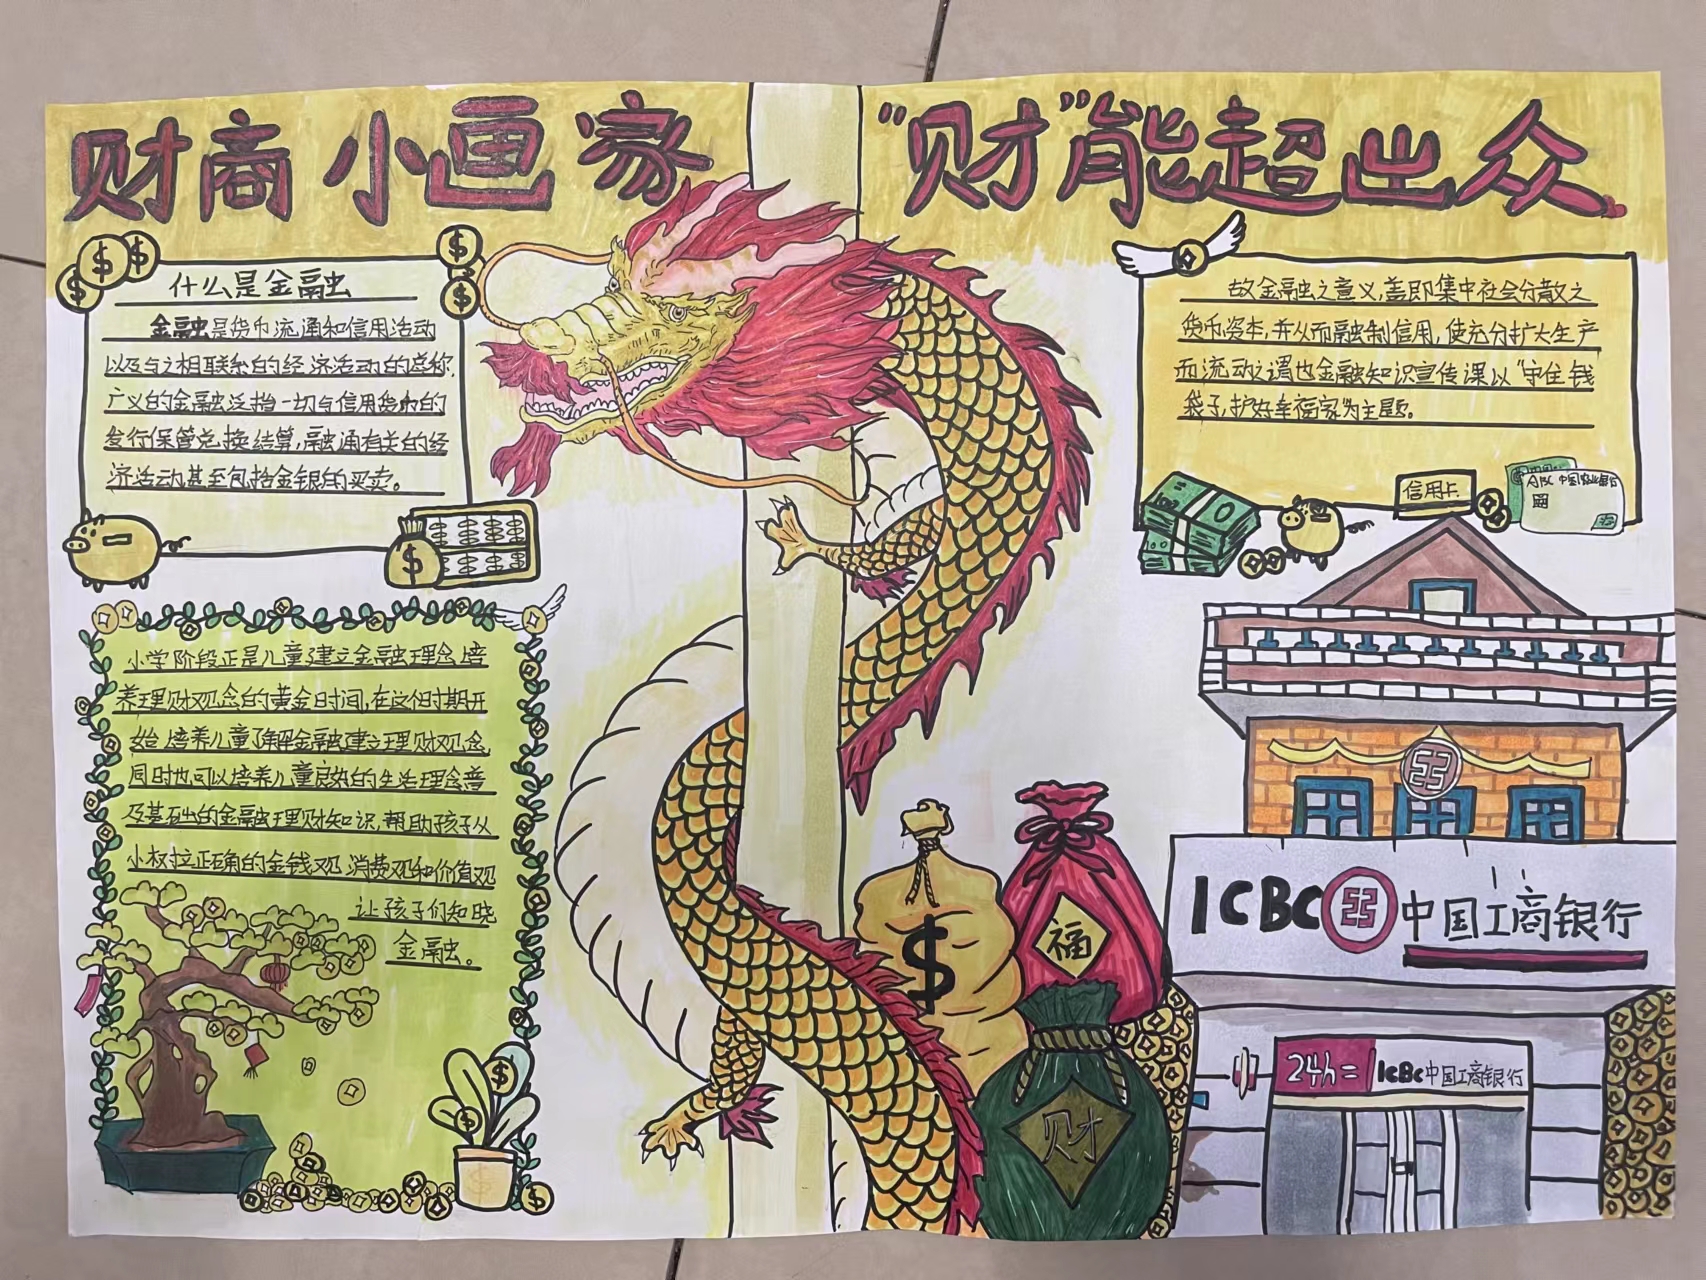 财商小画家
"财"能超出众
什么是金融
金融是货币流通和信用活动
以及与之相联系的经济活动的总称,
广义的金融泛指一切与信用货币的
发行保管兑换结算,融通有关的经
济活动甚至包括金银的买卖。
故金融之意义,盖即集中社会分散之
货币资本,并从而融制信用,使充分扩大生产
而流动之谓也金融知识宣传课以"守住钱
袋子,护好幸福家"为主题。
信用卡
小学阶段正是儿童建立金融理念培
养理财观念的黄金时间,在这个时期开
始培养儿童了解金融建立理财观念
同时也可以培养儿童良好的生活理念普
及基础的金融理财知识,帮助孩子从
小树立正确的金钱观,消费观和价值观
让孩子们知晓
金融。
$
福
财
ICBC 中国工商银行
24h= ICBC中国工商银行